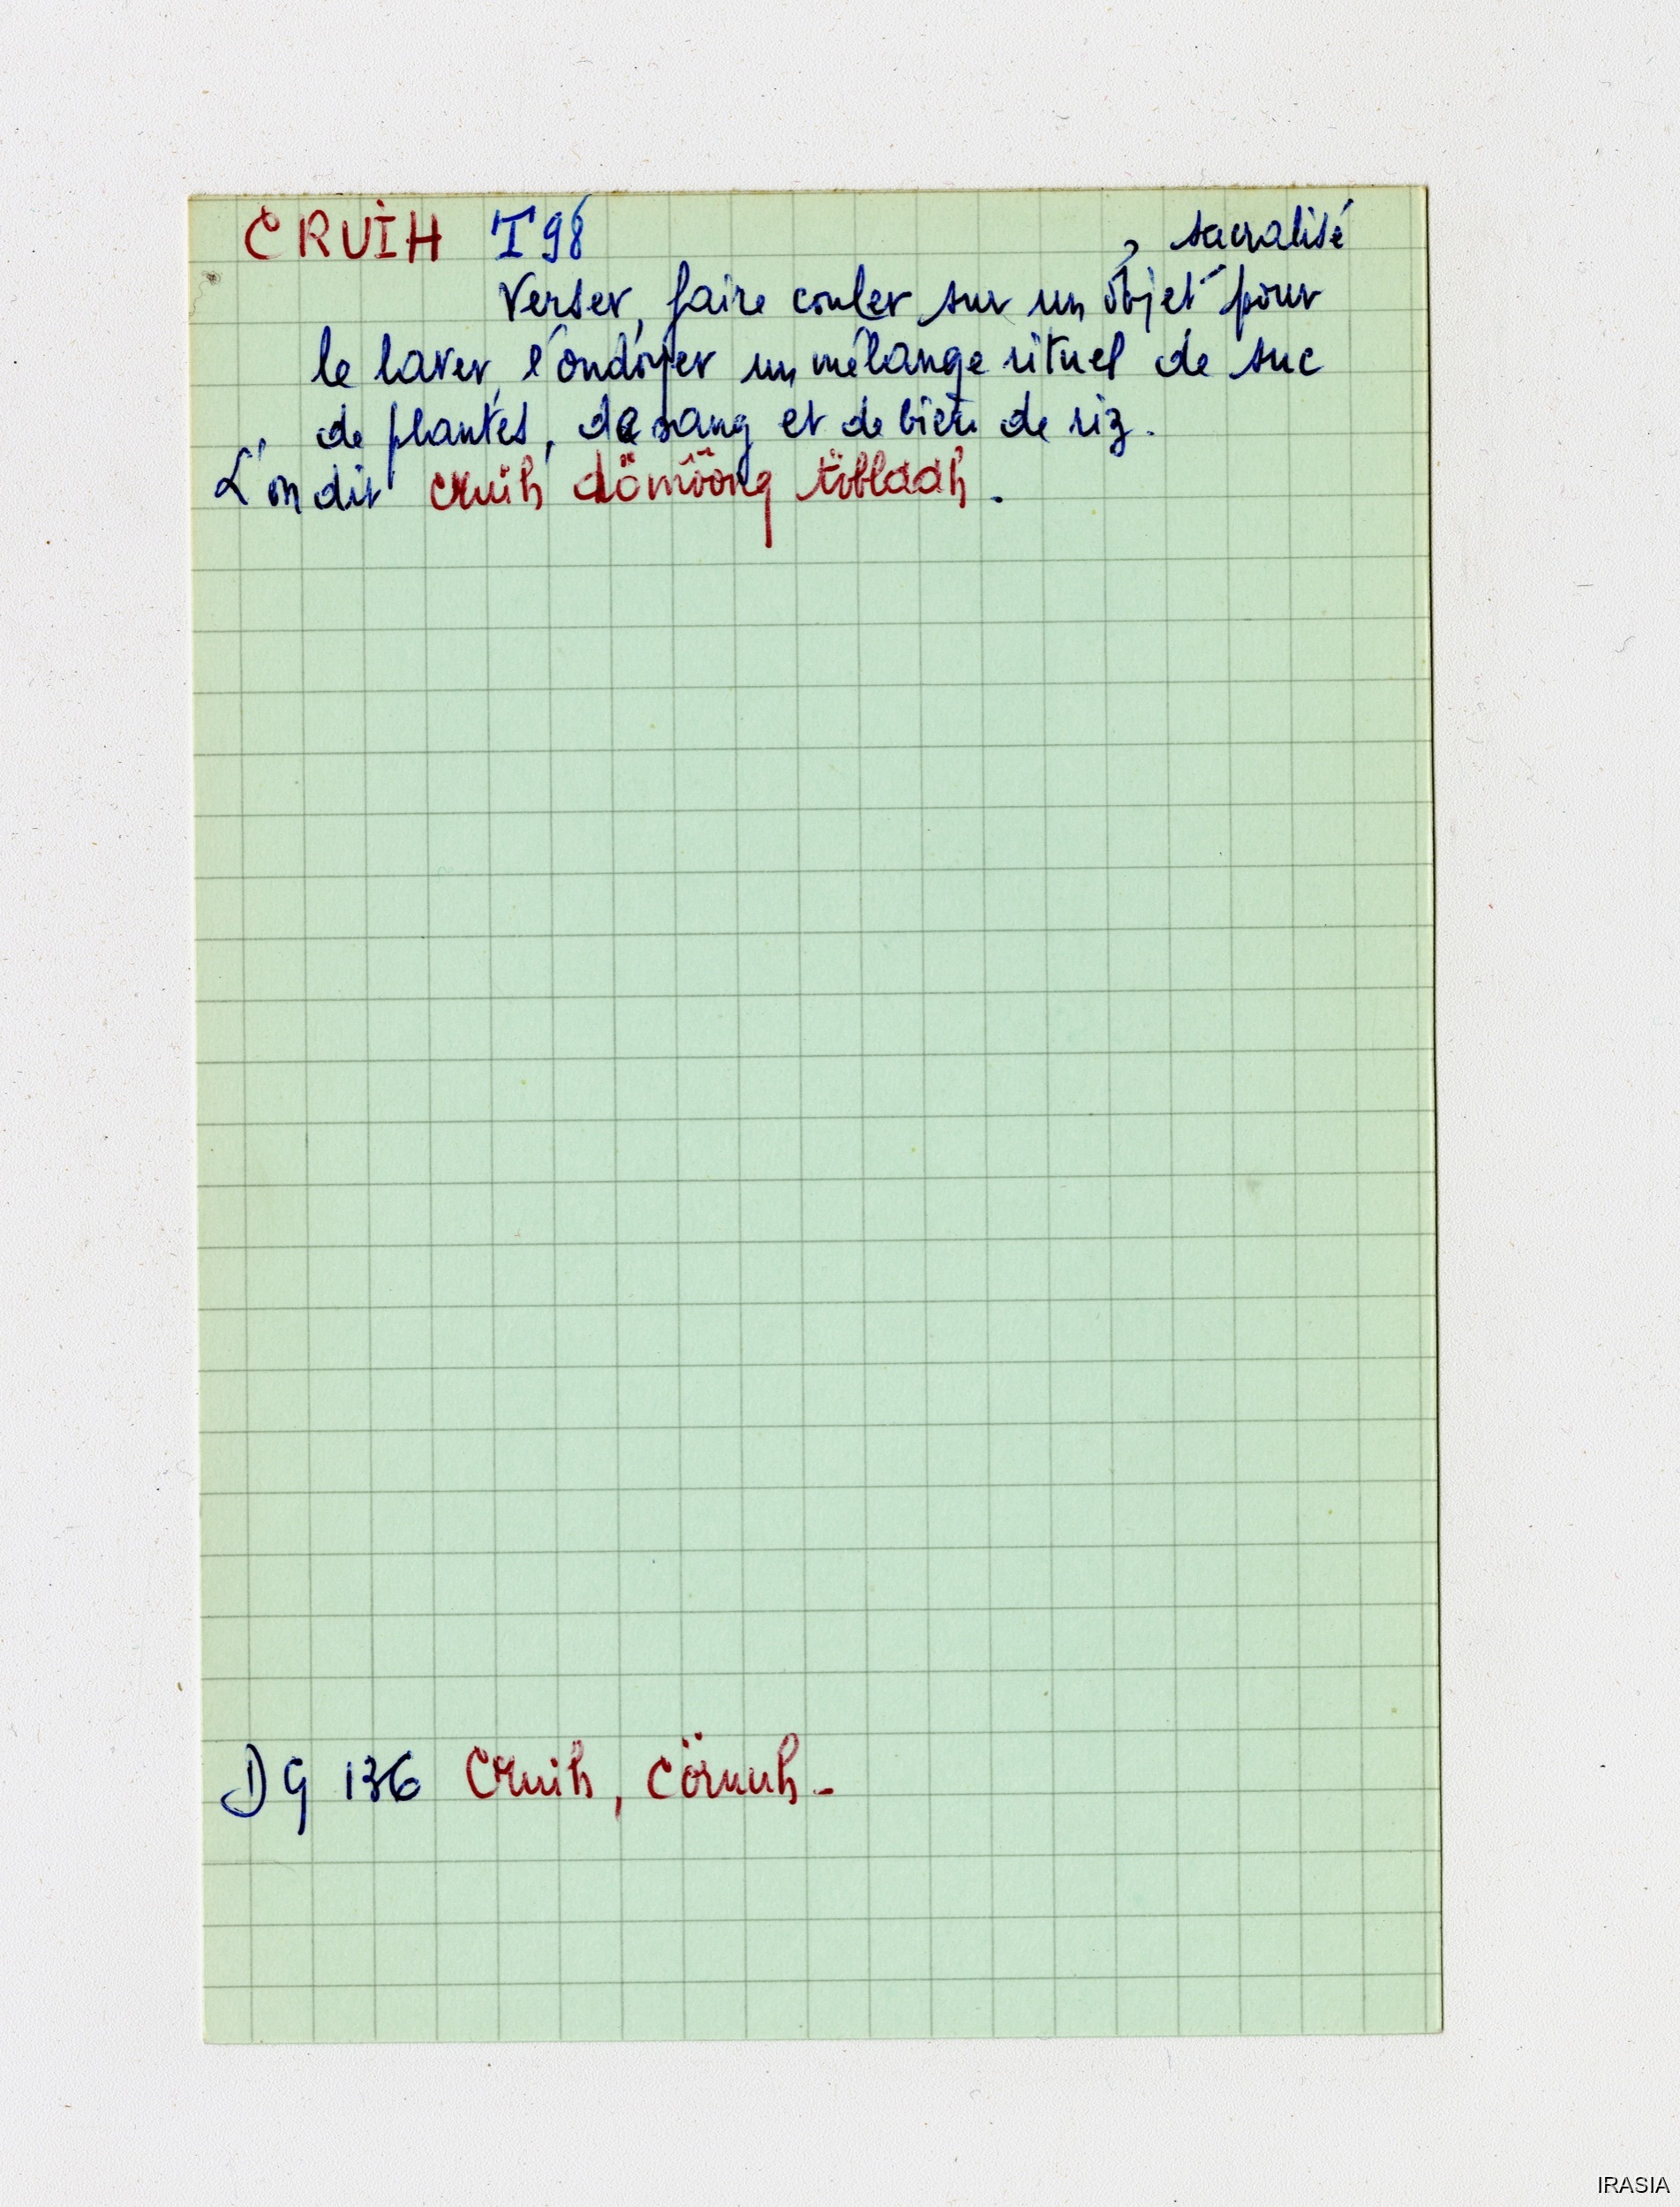 CRUIH T98
, sacralisé
Verser, faire couler sur un objet pour
le laver, l'ondoyer un mélange rituel de suc
de plantes, de sang et de bière de riz.
L'on dit cruih dömôông töblaah.
DG 136 Cruih, cöruuh-
IRASIA